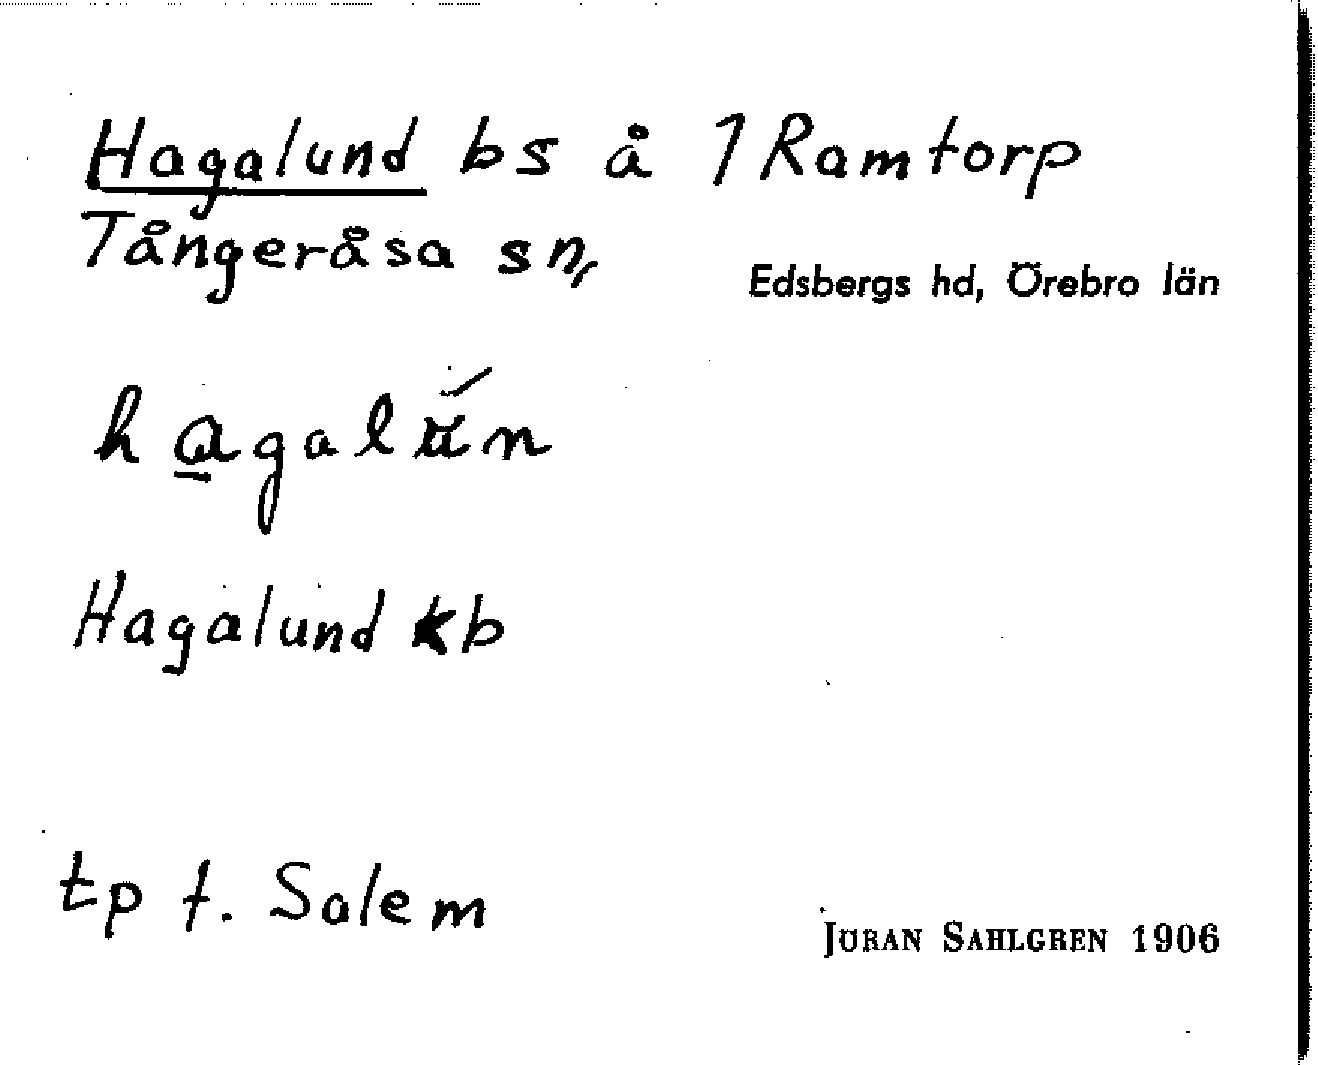 Hagalund bs å 1 Ramtorp
Tångeråsa sn,
Edsbergs hd, Örebro län
hagalŭ́n
Hagalund kb
tp t. Salem
JÖRAN SAHLGREN 1906